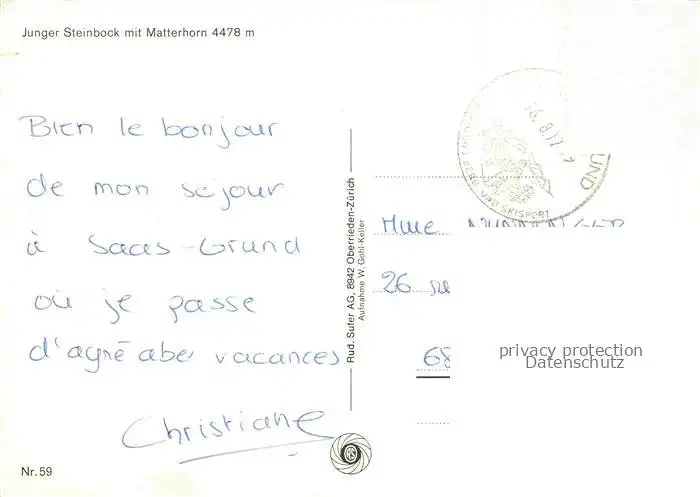 Junger Steinbock mit Matterhorn 4478 m
Bien le bonjour
de mon séjour
à Saas-Grund
où je passe
d'agréables vacances
Christiane
Nr. 59
Rud. Suter AG, 8942 Oberrieden-Zürich
Aufnahme W. Gohl-Keller
UND
BERG UND SKISPORT
Mme
26
68
privacy protection
Datenschutz